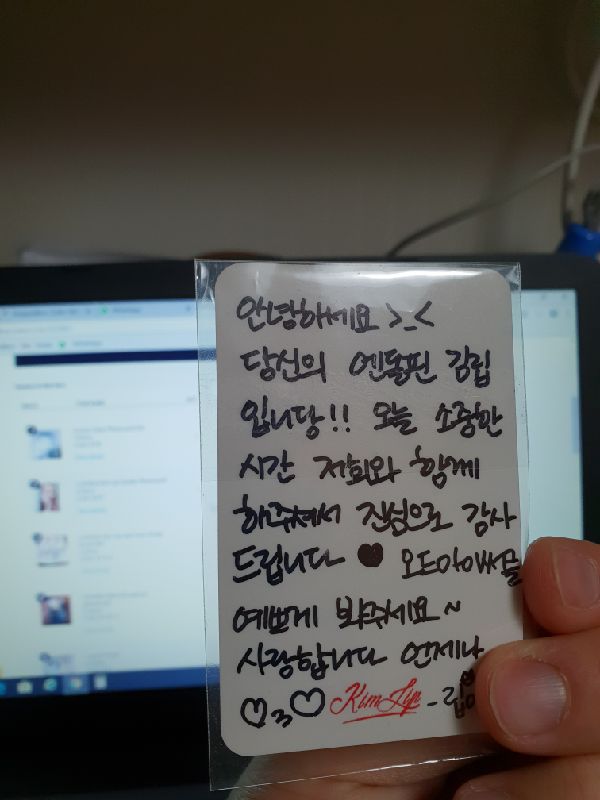 안녕하세요 >_<
당신의 엔돌핀 김립
입니당!! 오늘 소중한
시간 저희와 함께
해주셔서 진심으로 감사
드립니다 ♥ 오드아이써클
예쁘게 봐주세요~
사랑합니다 언제나
♡3♡ Kim Lip -립